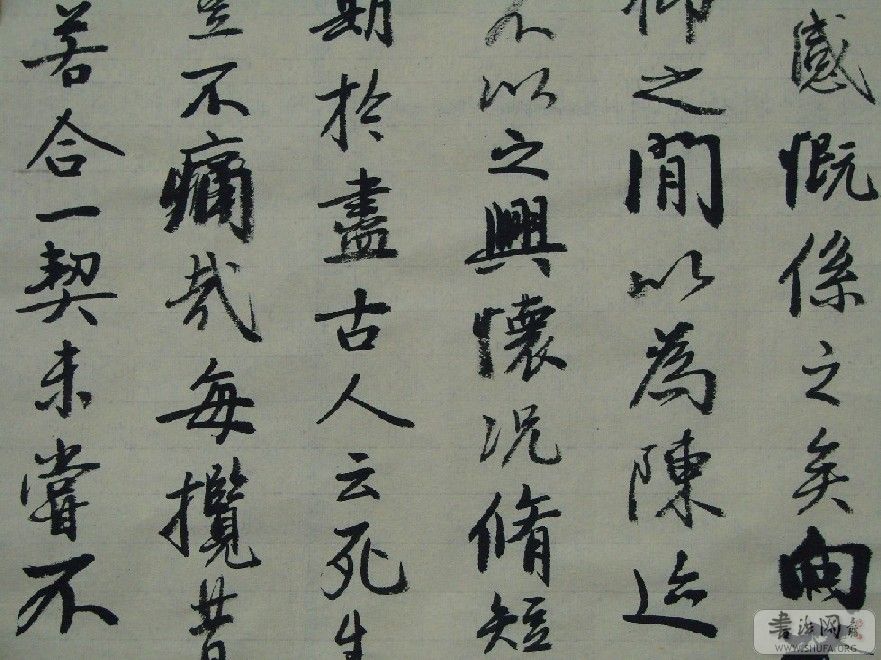 感慨係之矣向
仰之間以為陳迹
不以之興懷況脩短
期於盡古人云死生
豈不痛哉每攬昔
若合一契未嘗不
书法网
WWW.SHUFA.ORG